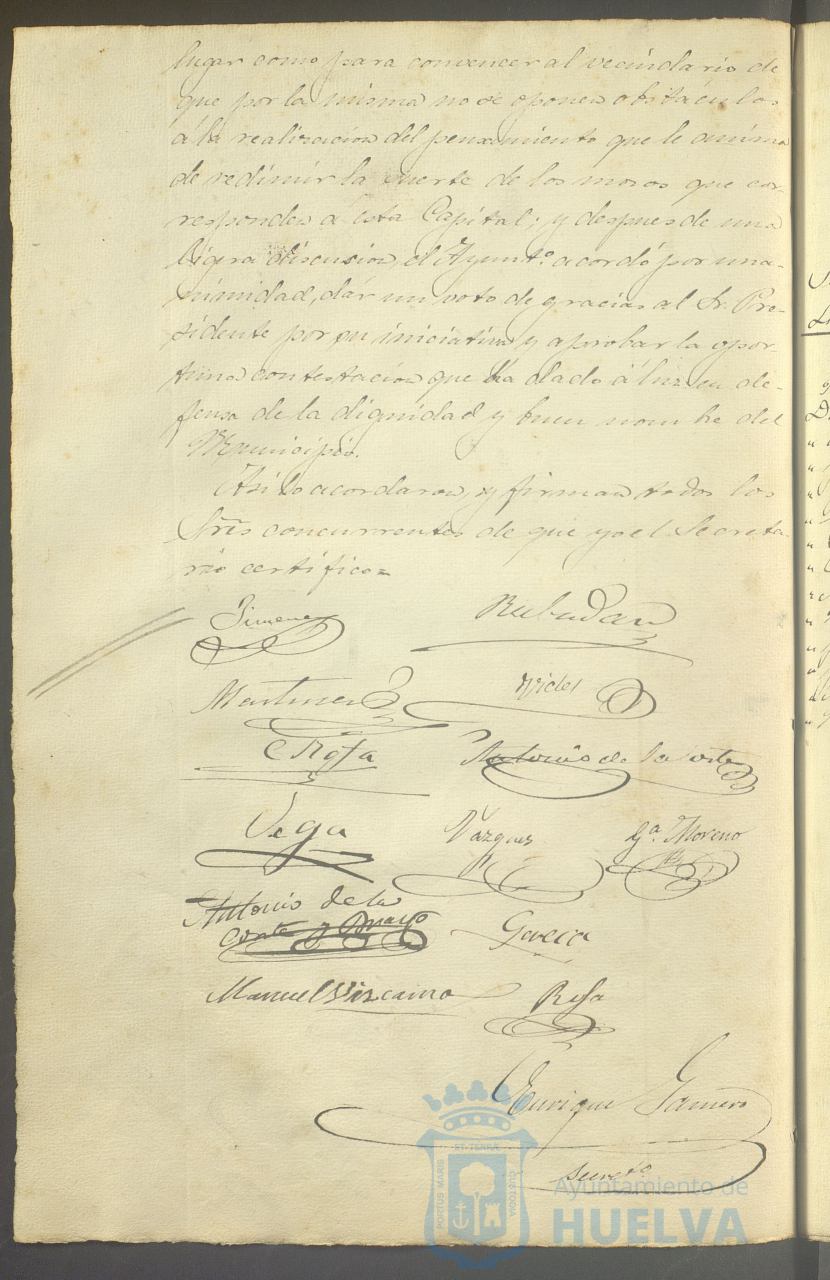 lugar como para convencer al vecindario de
que por la misma no se oponen obstáculos
á la realizacion del pensamiento que le anima
de redimir la suerte de los mozos que cor-
responden á esta Capital; y despues de una
ligera discusion, el Ayunt.º acordó por una-
nimidad, dár un voto de gracias al Sr. Pre-
sidente por su iniciativa y aprobar la opor-
tuna contestacion que ha dado á luz en de-
fensa de la dignidad y buen nombre del
Municipio.
Asi lo acordaron, y firman todos los
Sres concurrentes de que yo el Secreta-
rio certifico=
Jimenez
Martinez
Vides
Rofa
Antonio de la Corte
Vega
Vazquez
Gª. Moreno
Antonio de la
Corte y
Garcia
Manuel Vizcaino
Rofa
Enrique Gamero
Secretº
PORTUS MARIS
ET TERRÆ
CUSTODIA
Ayuntamiento de
HUELVA